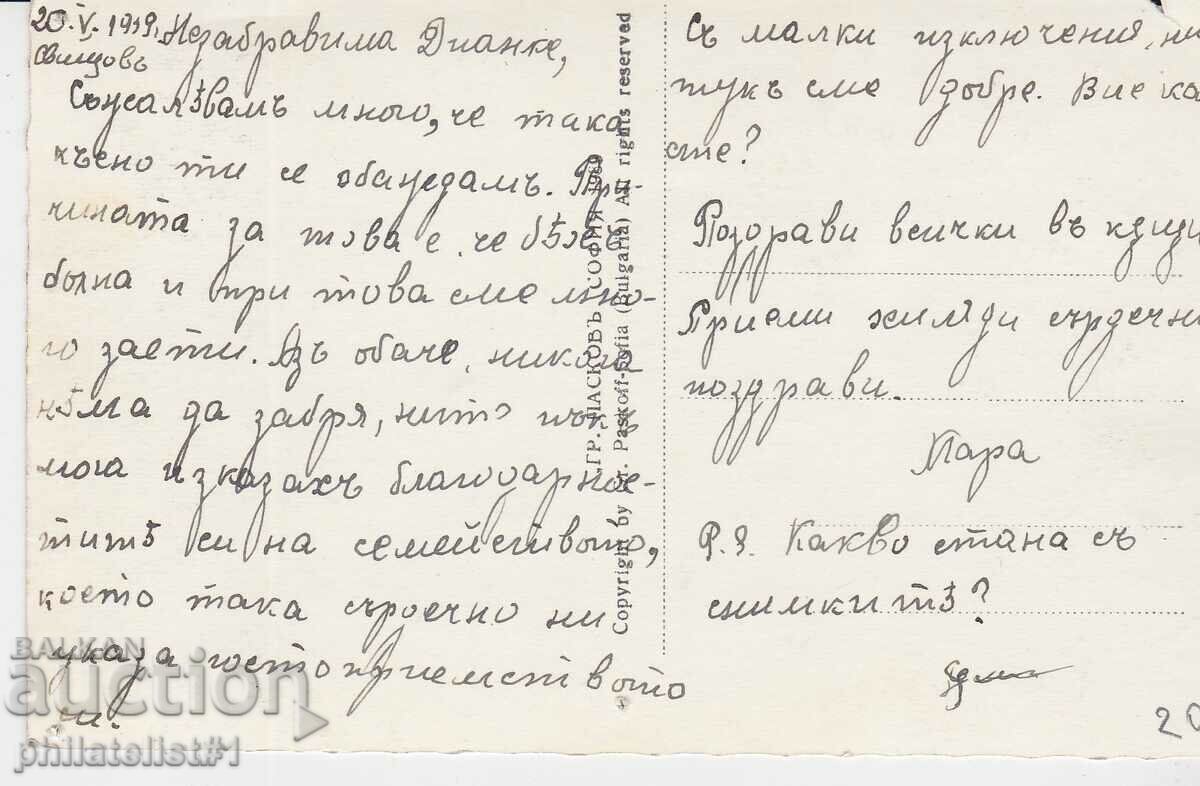 20.V.1939. Незабравима Дианке,
Свищовъ
Съжалѣвамъ много, че така
късно ти се обаждамъ. При-
чината за това е, че бѣхъ
болна и при това сме мно-
го заети. Азъ обаче, никога
нѣма да забравя, нито пъкъ
мога изказахъ благодарнос-
титѣ си на семейството,
което така сърдечно ни
указа гостоприемството
си.
ГР. ПАСКОВЪ СОФИЯ 1939
Copyright by Gr. Paskoff-Sofia (Bulgaria) All rights reserved
Съ малки изключения, ни
тукъ сме добре. Вие ка
сте?
Поздрави всички въ кжщи
Приеми хиляди сърдечни
поздрави.
Мара
P.S. Какво стана съ
снимкитѣ?
20
BALKAN
auction
philatelist#1